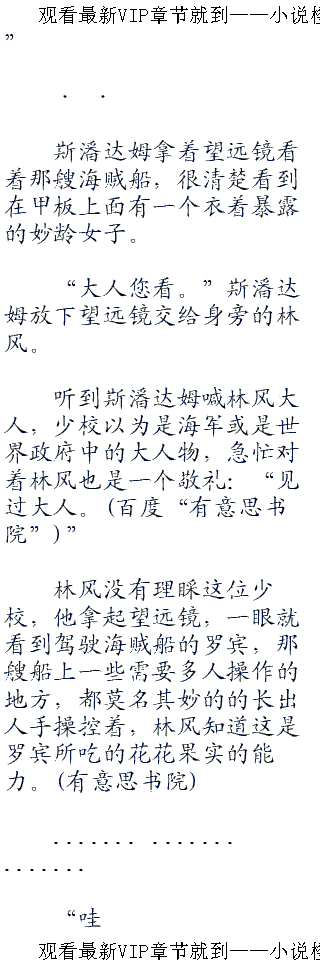 观看最新VIP章节就到——小说
”
. .
斯潘达姆拿着望远镜看
着那艘海贼船，很清楚看到
在甲板上面有一个衣着暴露
的妙龄女子。
“大人您看。”斯潘达
姆放下望远镜交给身旁的林
风。
听到斯潘达姆喊林风大
人，少校以为是海军或是世
界政府中的大人物，急忙对
着林风也是一个敬礼：“见
过大人。(百度“有意思书
院”)”
林风没有理睬这位少
校，他拿起望远镜，一眼就
看到驾驶海贼船的罗宾，那
艘船上一些需要多人操作的
地方，都莫名其妙的的长出
人手操控着，林风知道这是
罗宾所吃的花花果实的能
力。(有意思书院)
....... .......
.......
“哇
观看最新VIP章节就到——小说